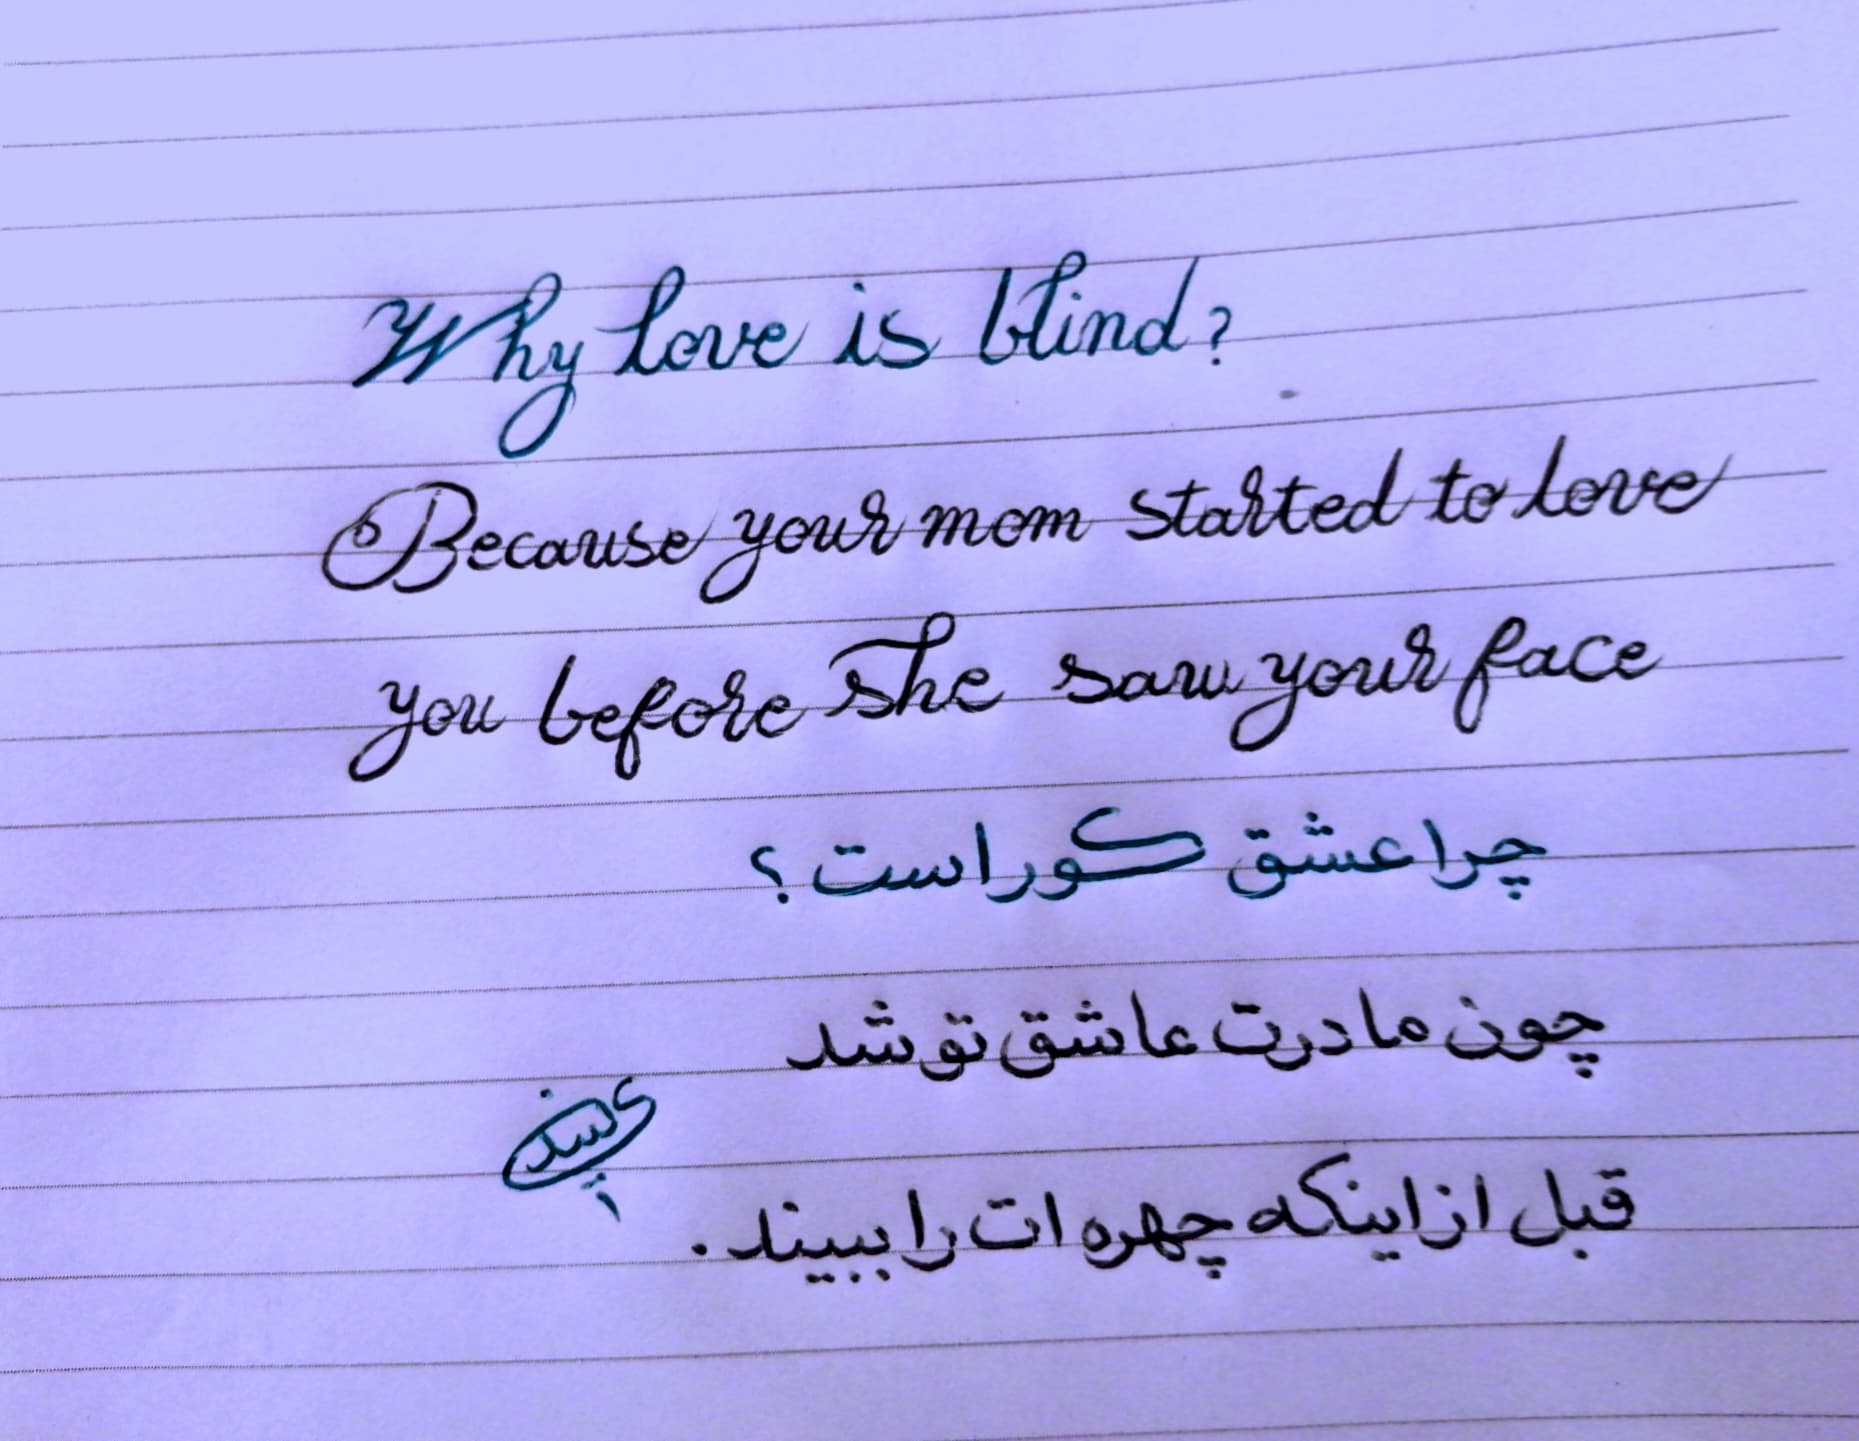 Why love is blind?
Because your mom started to love
you before she saw your face
چرا عشق کور است؟
چون مادرت عاشق تو شد
قبل از اینکه چهره ات را ببیند.